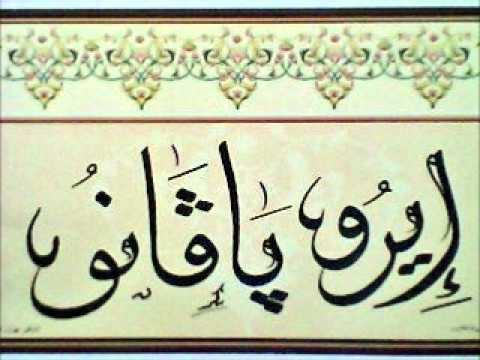 إيرُو پاڤانُو